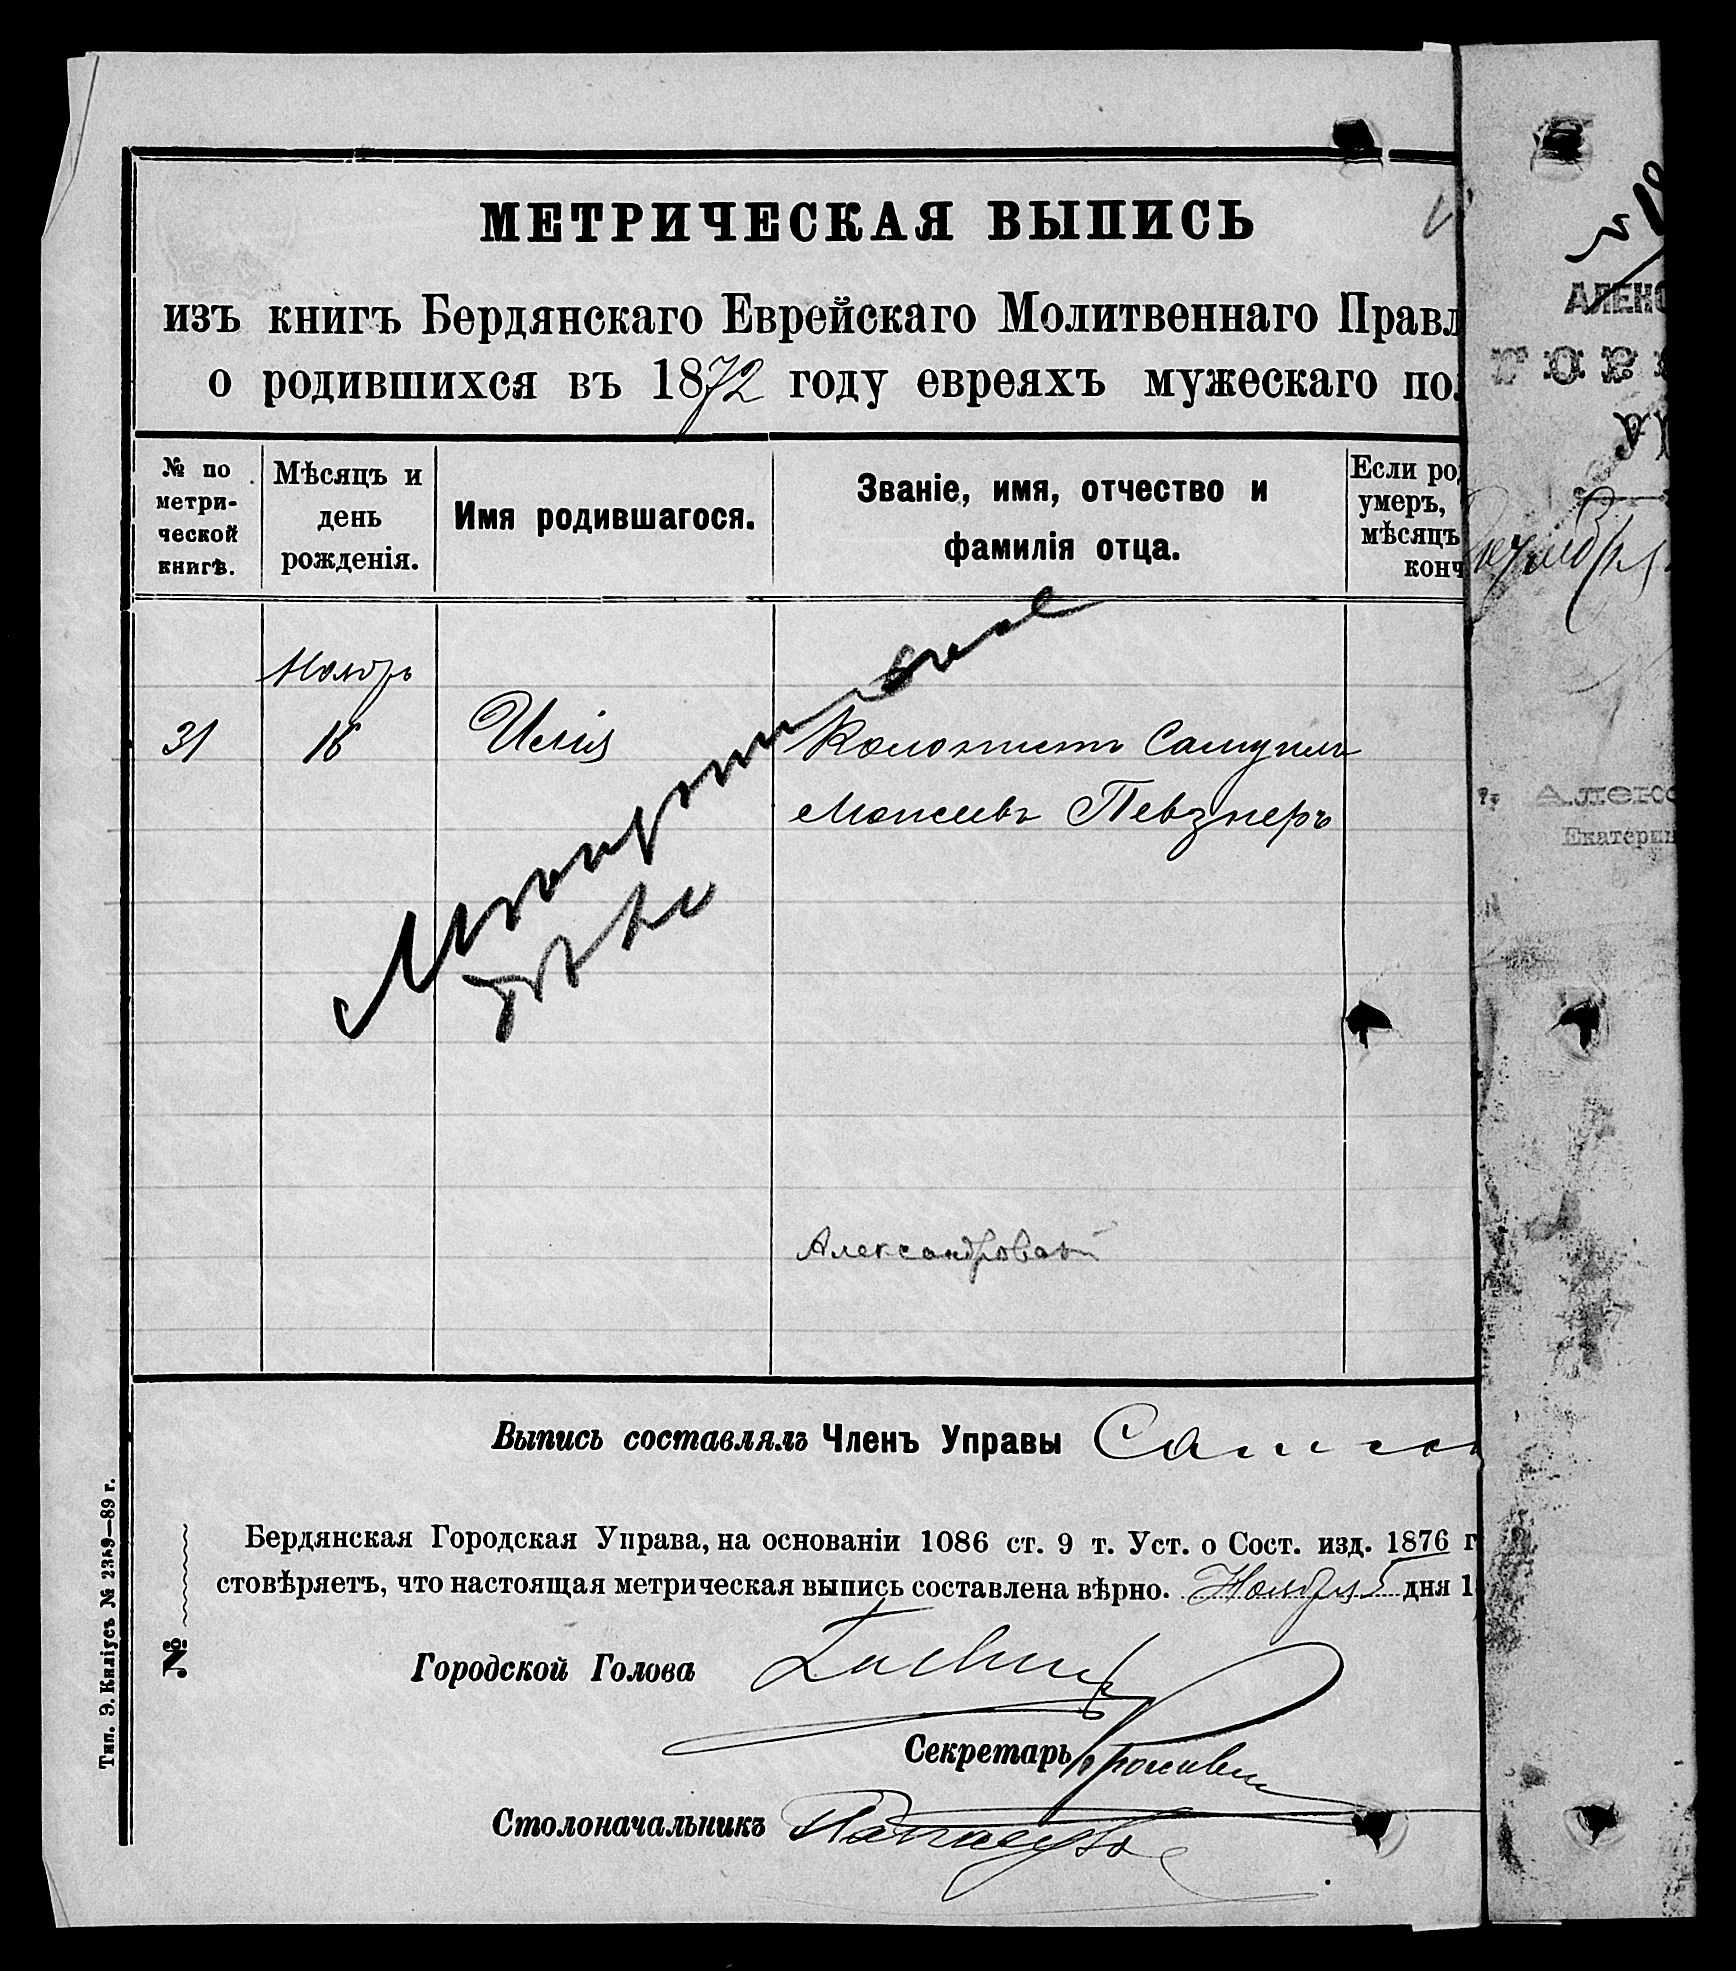 МЕТРИЧЕСКАЯ ВЫПИСЬ
изъ книгъ Бердянскаго Еврейскаго Молитвеннаго Правл
о родившихся въ 1872 году евреяхъ мужескаго по
№ по метри-ческой книгѣ.
Мѣсяцъ и день рожденія.
Имя родившагося.
Званіе, имя, отчество и фамилія отца.
Если ро
умеръ,
мѣсяцъ
конч
Ноябр
31 16 Илія Колонистъ Самуилъ
Моисеевъ Певзнеръ
Александровскъ
Выпись составлялъ Членъ Управы
Бердянская Городская Управа, на основаніи 1086 ст. 9 т. Уст. о Сост. изд. 1876 г
стовѣряетъ, что настоящая метрическая выпись составлена вѣрно. Ноября 5 дня 1
Городской Голова
Секретарь
Столоначальникъ
№
Тип. Э. Киліусъ № 2359—89 г.
АЛЕКС
ГОРО
Алекс
Екатерин